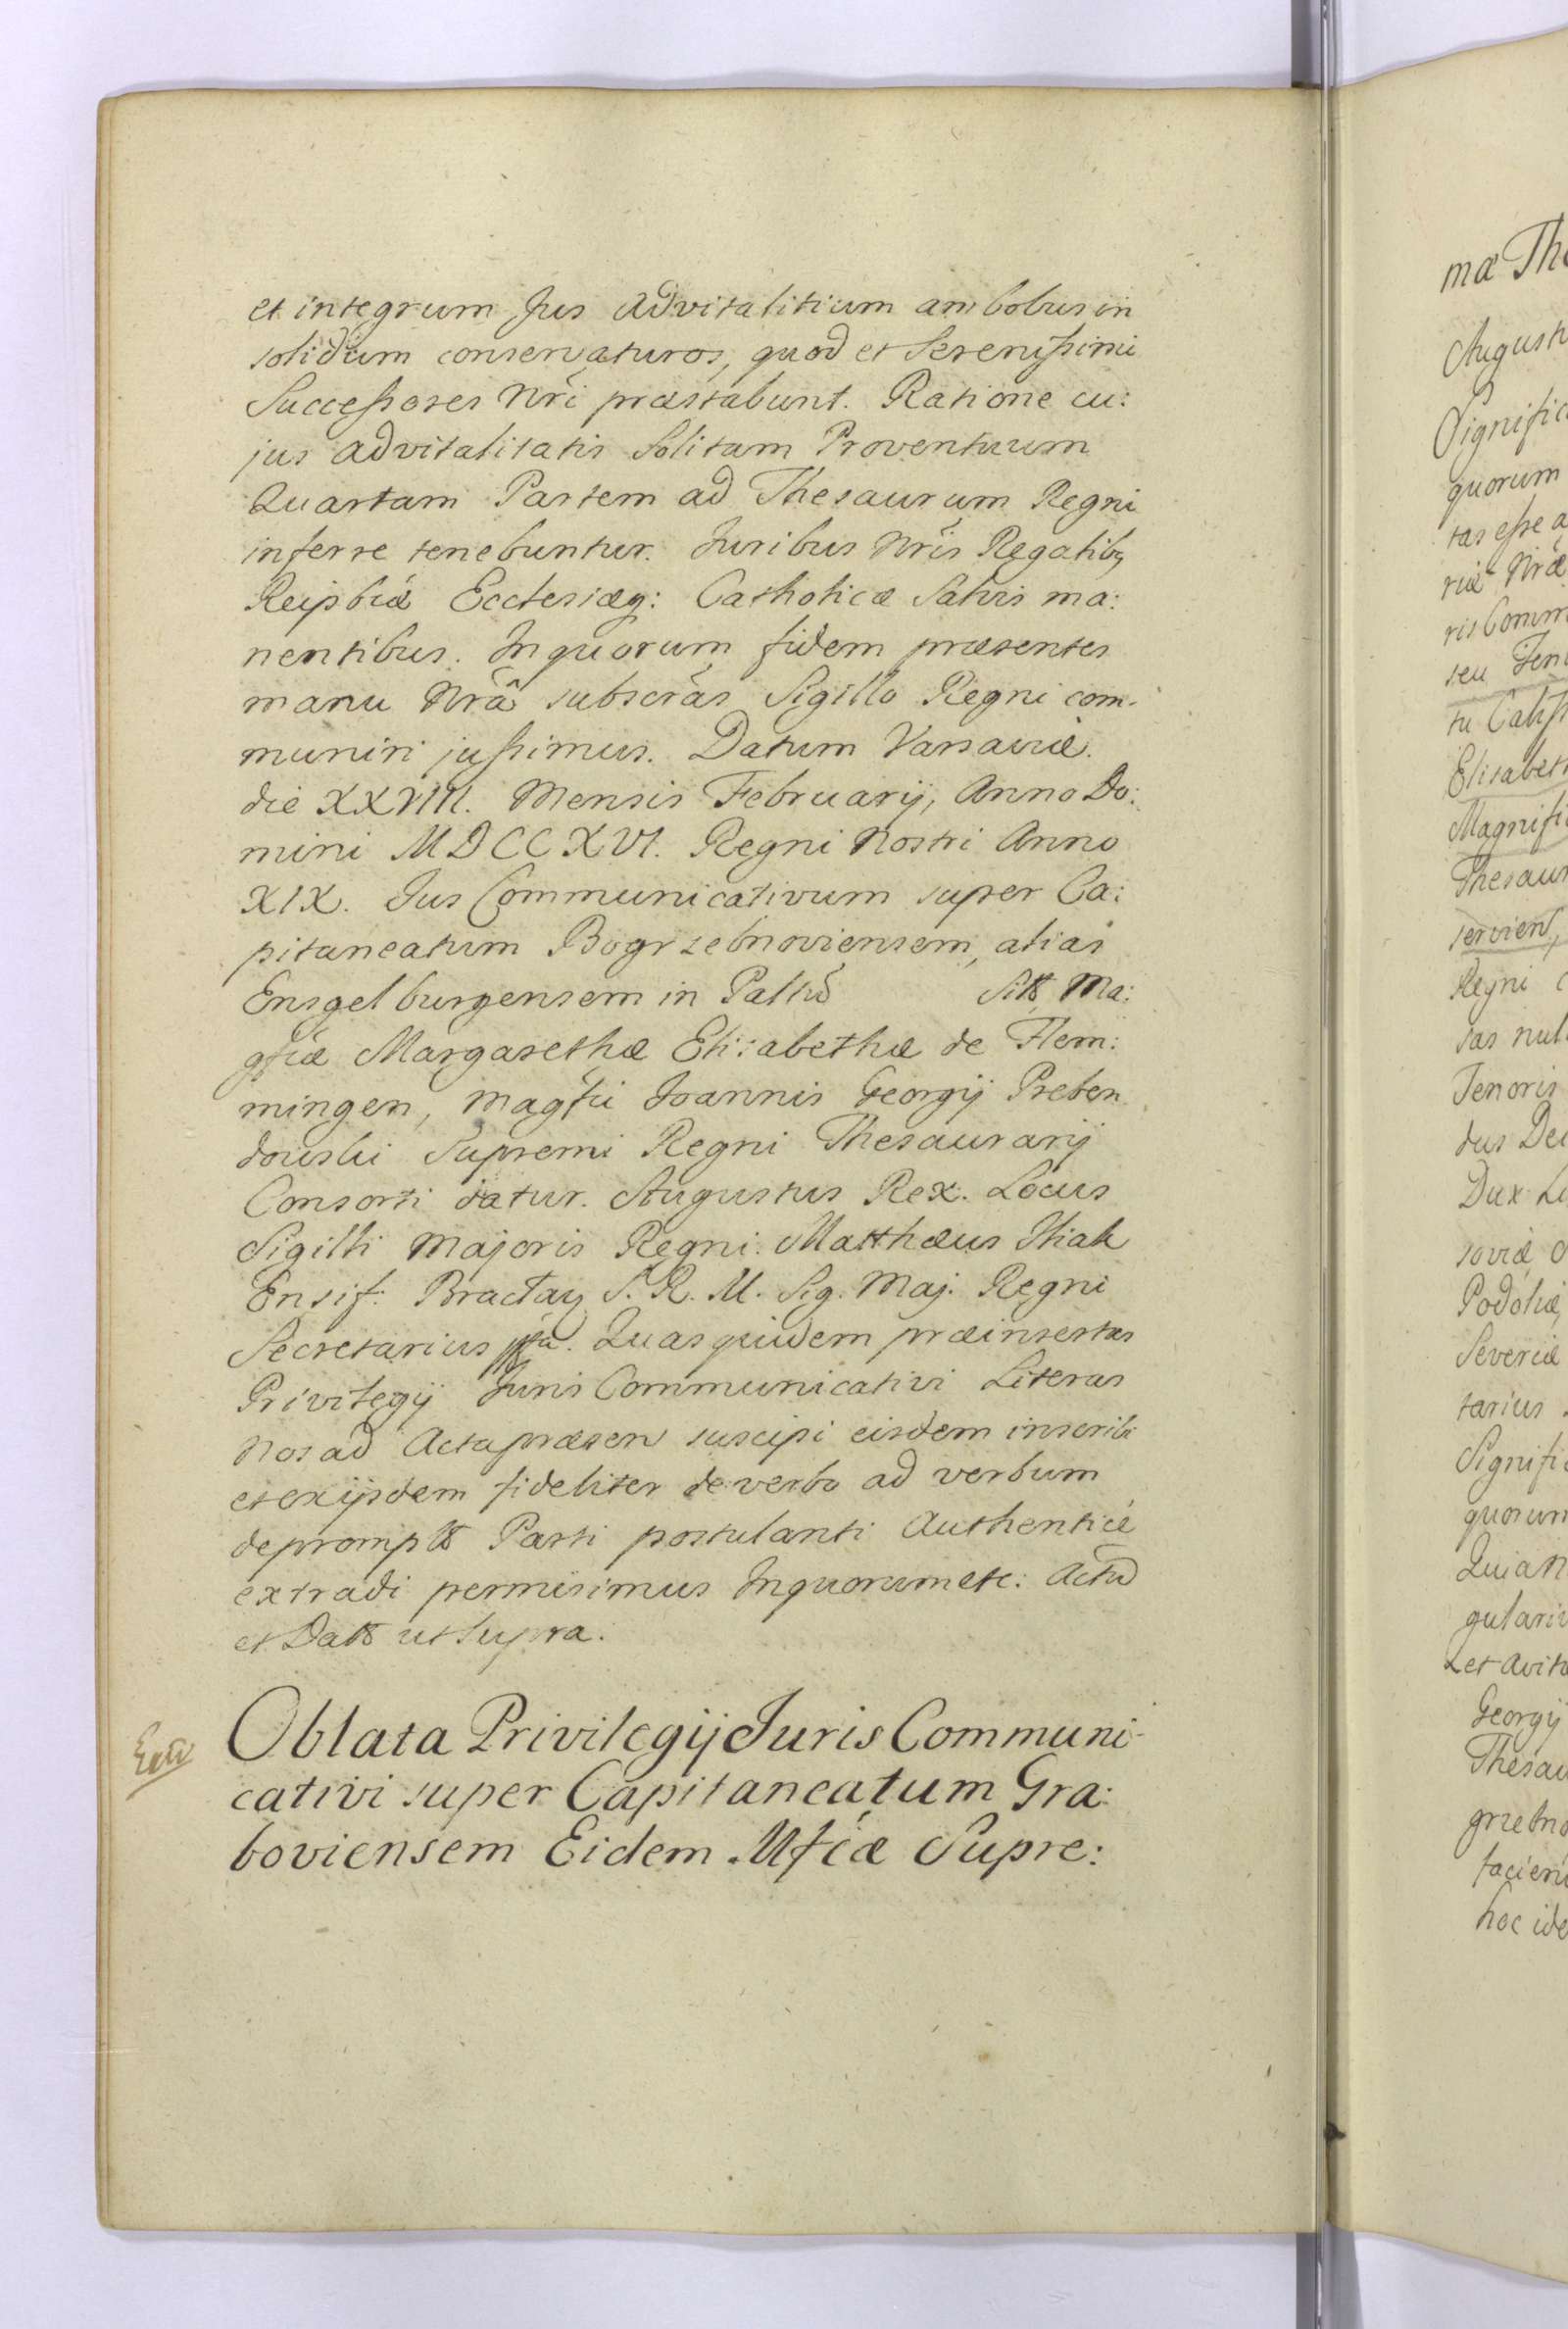 et integrum Jus advitalitium ambobus in
solidum conservaturos, quod et Serenissimi
Successores Nri præstabunt. Ratione cu:
jus advitalitatis Solitam Proventuum
Quartam Partem ad Thesaurum Regni
inferre tenebuntur. Juribus Nris Regalibq
Reipbcæ Ecclesiæq: Catholicæ Salvis ma:
nentibus. In quorum fidem præsentes
manu Nrâ subscras Sigillo Regni com-
muniri jussimus. Datum Varsaviæ.
die XXVIII. Mensis Februarij, Anno Do:
mini MDCCXVI. Regni Nostri Anno
XIX. Jus Communicativum super Ca:
pitaneatum Bogrzebnoviensem, alias
Ensgelburgensem in Palttu Sitt Ma:
gfcæ Margarethæ Elisabethæ de Flem:
mingen, Magfci Joannis Georgij Preben
dowski Supremi Regni Thesaurarij
Consorti datur. Augustus Rex. Locus
Sigilli Majoris Regni. Matthæus
Ensif: Braclav S. R. M. Sig. Maj. Regni
Secretarius Quas quidem præinsertas
Privilegij Juris Communicativi Literas
Nos ad Acta præsen suscipi eisdem inscribi
et ex ijsdem fideliter de verbo ad verbum
depromptt Parti postulanti Authenticè
extradi permisimus In quorum etc: Actu
et Datt ut supra.
Oblata Privilegij Juris Communi-
cativi super Capitaneatum Gra:
boviensem Eidem Mfcæ Supre:
mæ
quorum
seu
Elisabeth
Regni
Tenoris
Dux
Podoliæ,
Severiæ
tarius
gulari
Georgij
hoc ide